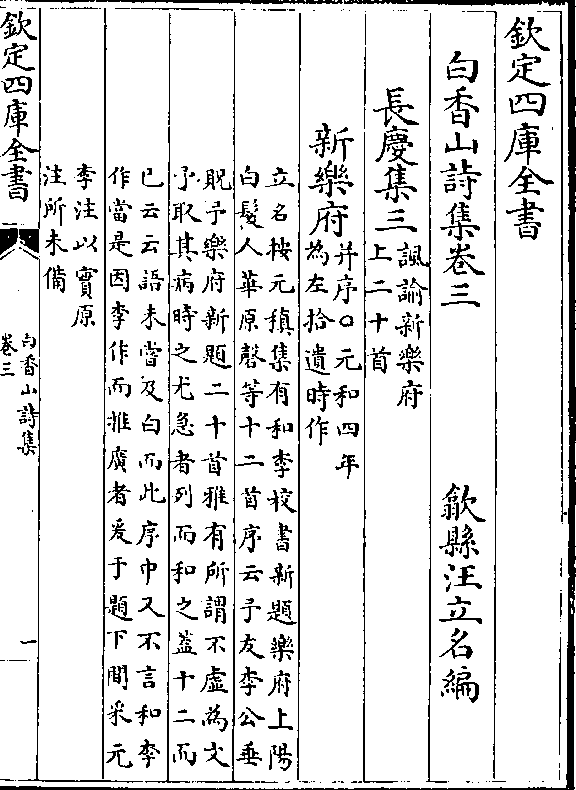 欽定四庫全書
白香山詩集卷三
歙縣汪立名編
長慶集三
諷諭新樂府
上二十首
新樂府
并序○元和四年
為左拾遺時作
立名按元稹集有和李校書新題樂府上陽
白髮人華原磬等十二首序云予友李公垂
貺予樂府新題二十首雅有所謂不虛為文
予取其病時之尤急者列而和之蓋十二而
已云云語未嘗及白而此序中又不言和李
作當是因李作而推廣者爰于題下間采元
李注以實原
注所未備
欽定四庫全書
白香山詩集
卷三
一